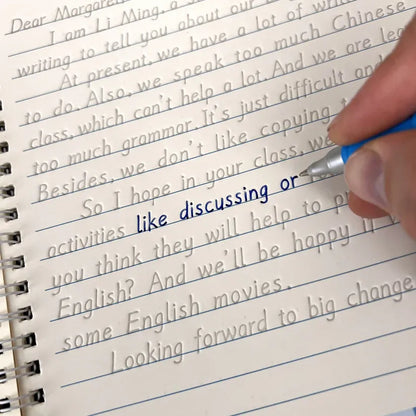 Dear Margaret
I am Li Ming, a
writing to tell you about our
At present, we have a lot of
to do. Also, we speak too much Chinese
class, which can't help a lot. And we are
too much grammar. It's just difficult and
Besides, we don't like copying
So I hope in your class, we
activities like discussing or
you think they will help to
English? And we'll be happy if
some English movies.
Looking forward to big change